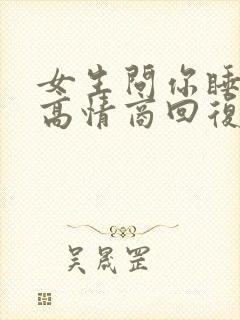 女生問你睡
高情商回復
吴晟罡